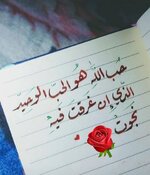 حُب اللّٰه هو الحُب الوحيد
الذي إن غرقت فيه
نجوت